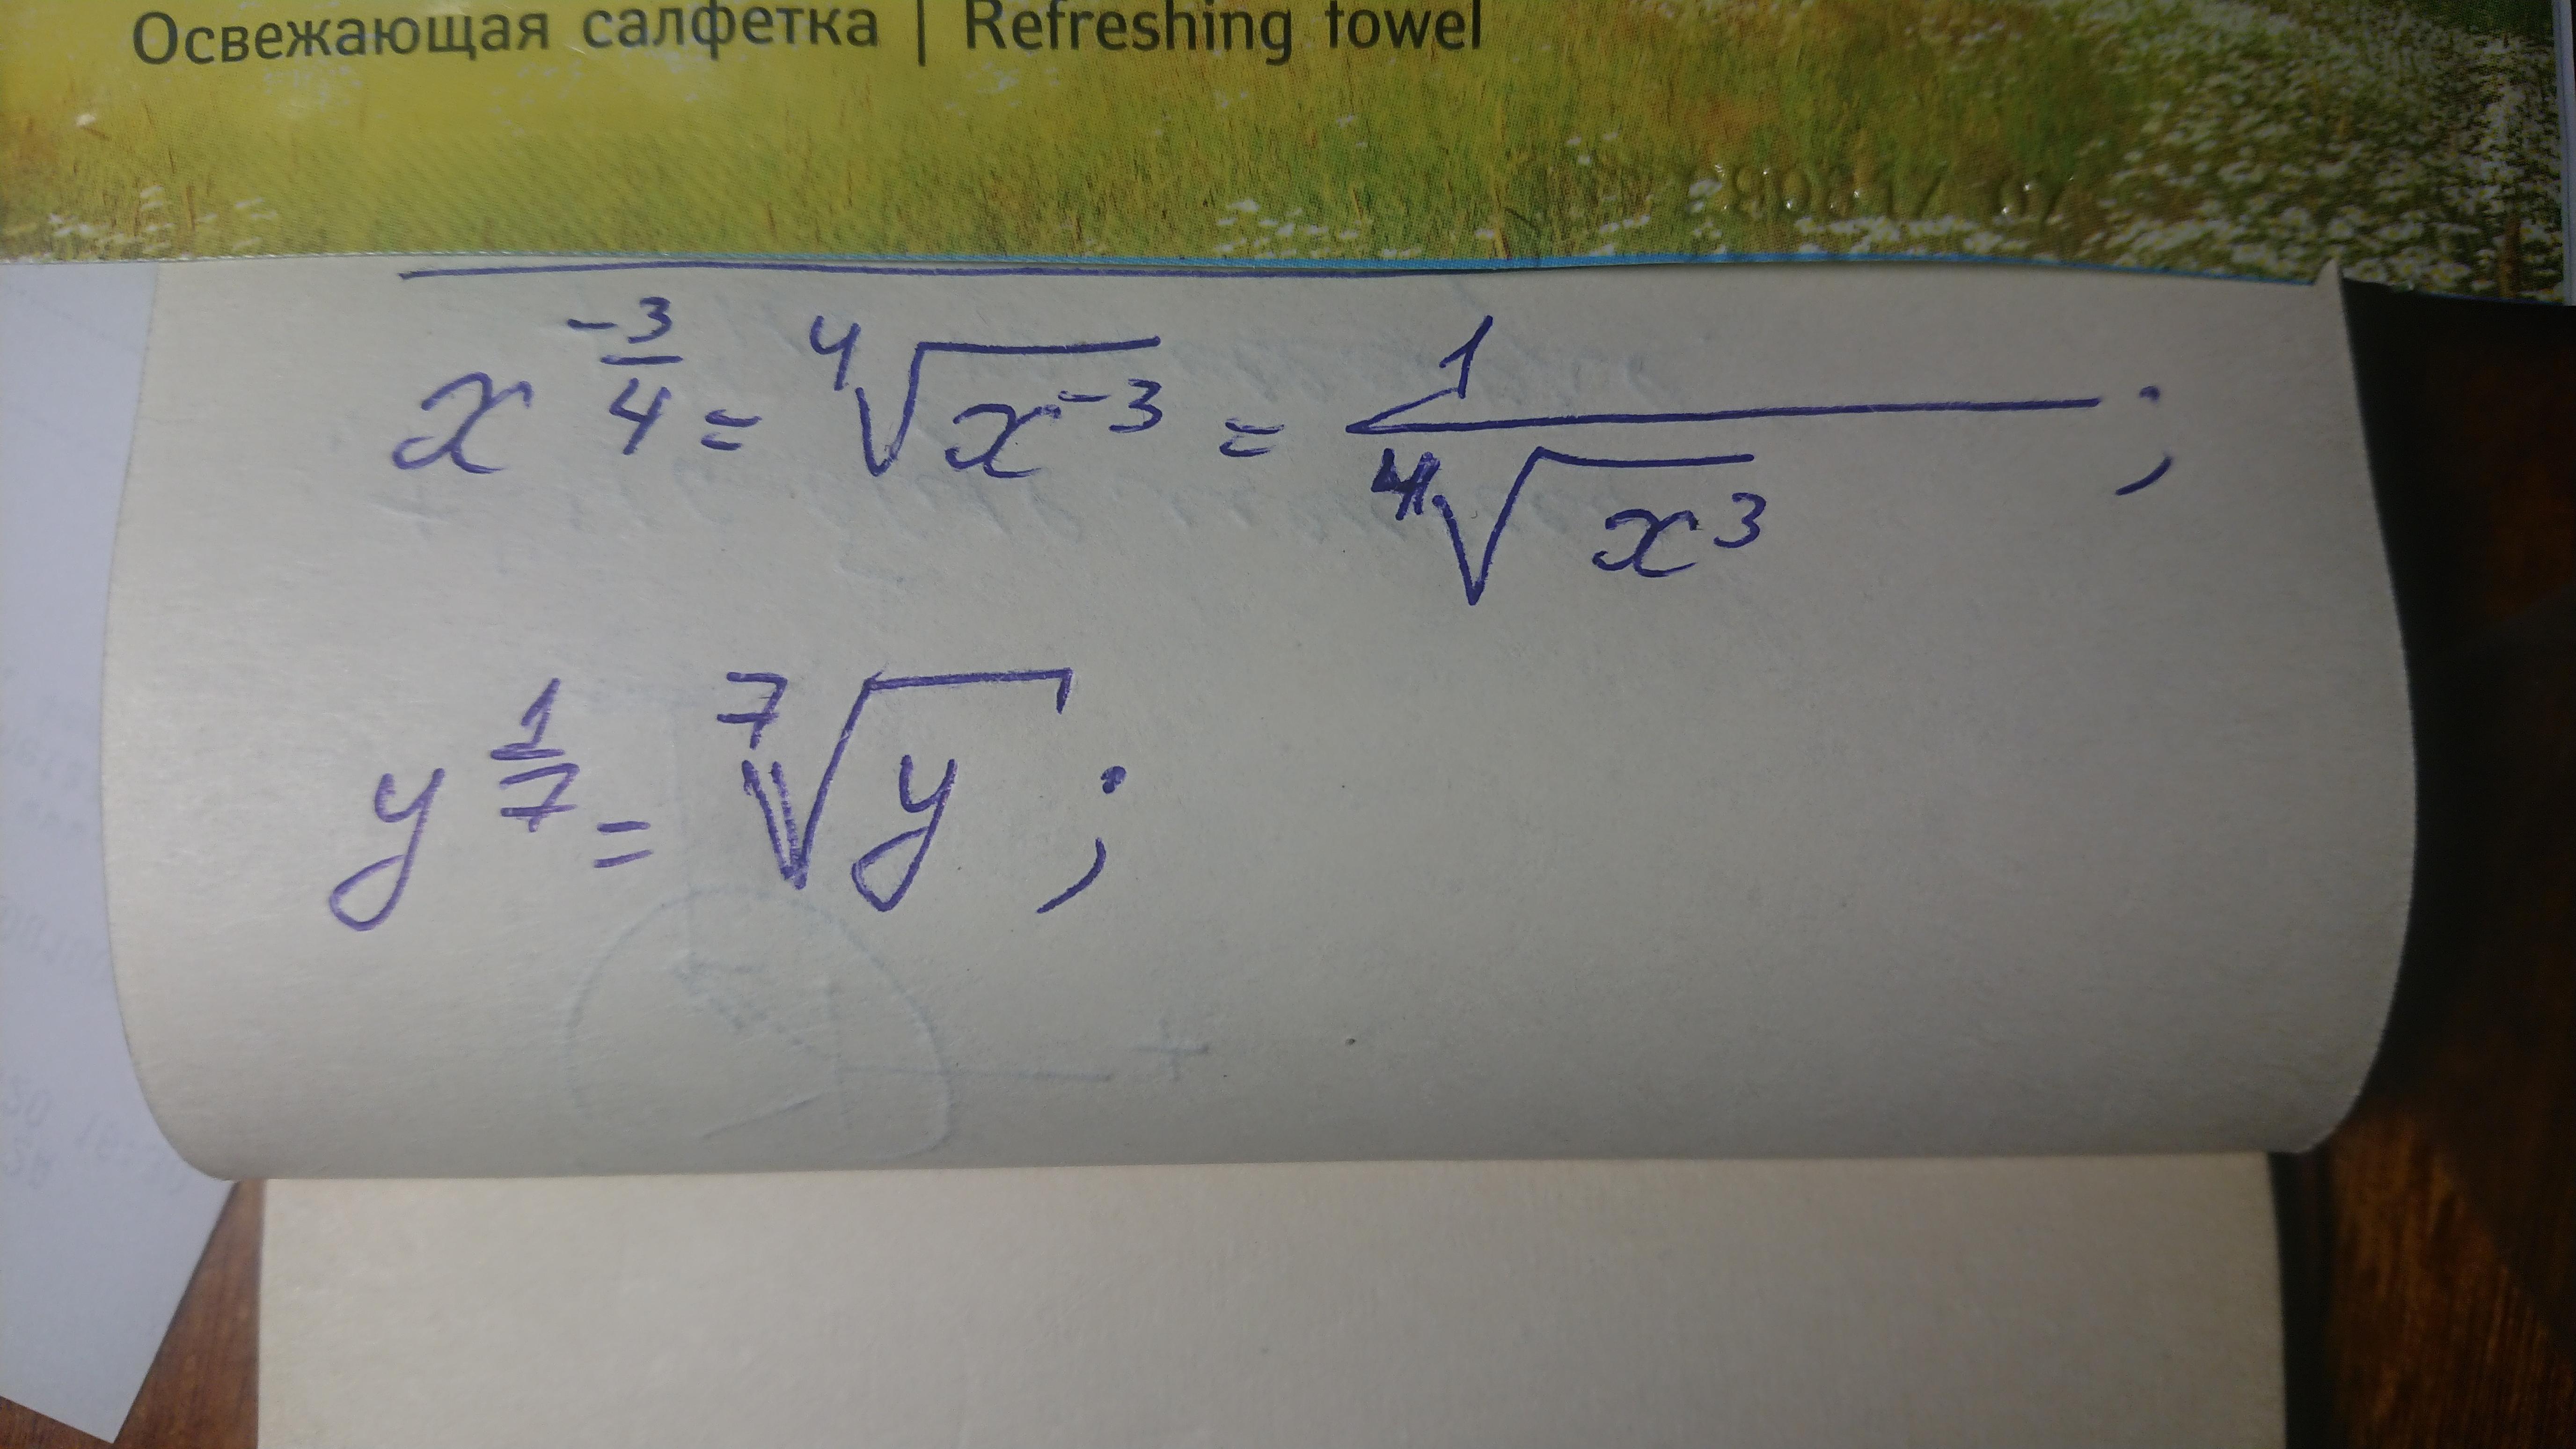 Освежающая салфетка | Refreshing towel
x^{-3/4} = ⁴√(x⁻³) = 1/⁴√(x³) ;
y^{1/7} = ⁷√y ;